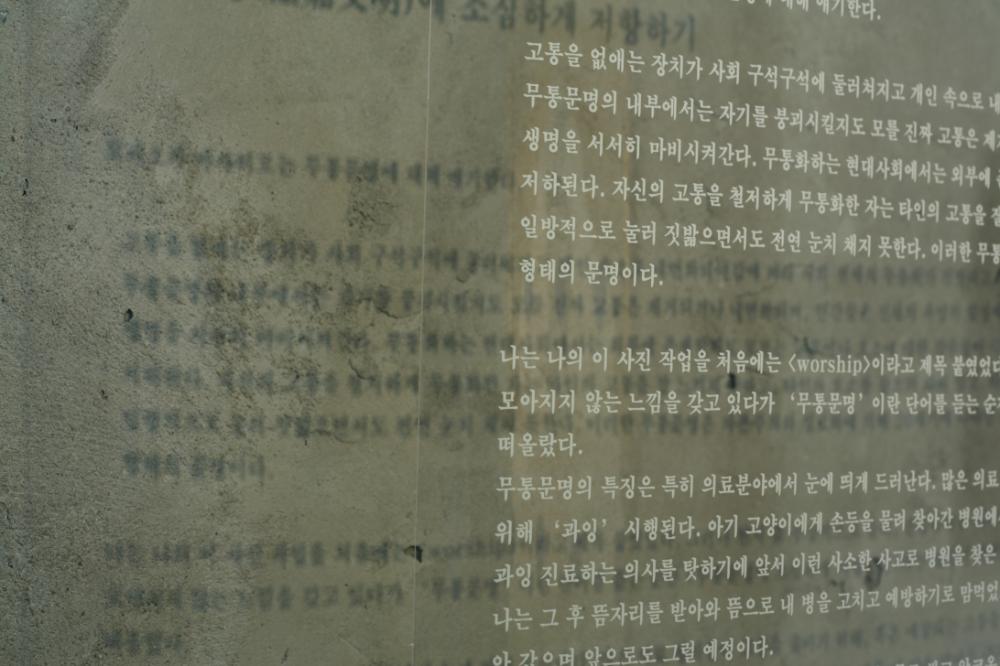 에 소심하게 저항하기
얘기한다.
고통을 없애는 장치가 사회 구석구석에 둘러쳐지고 개인 속으로
무통문명의 내부에서는 자기를 붕괴시킬지도 모를 진짜 고통은
생명을 서서히 마비시켜간다. 무통화하는 현대사회에서는 외부에
저하된다. 자신의 고통을 철저하게 무통화한 자는 타인의 고통을
일방적으로 눌러 짓밟으면서도 전연 눈치 채지 못한다. 이러한
형태의 문명이다.
나는 나의 이 사진 작업을 처음에는 〈worship〉이라고 제목 붙였었
모아지지 않는 느낌을 갖고 있다가 ‘무통문명’이란 단어를 듣는
떠올랐다.
무통문명의 특징은 특히 의료분야에서 눈에 띄게 드러난다. 많은 의료
위해 ‘과잉’ 시행된다. 아기 고양이에게 손등을 물려 찾아간 병원에
과잉 진료하는 의사를 탓하기에 앞서 이런 사소한 사고로 병원을 찾은
나는 그 후 뜸자리를 받아와 뜸으로 내 병을 고치고 예방하기로 맘먹었
앞으로도 그럴 예정이다.